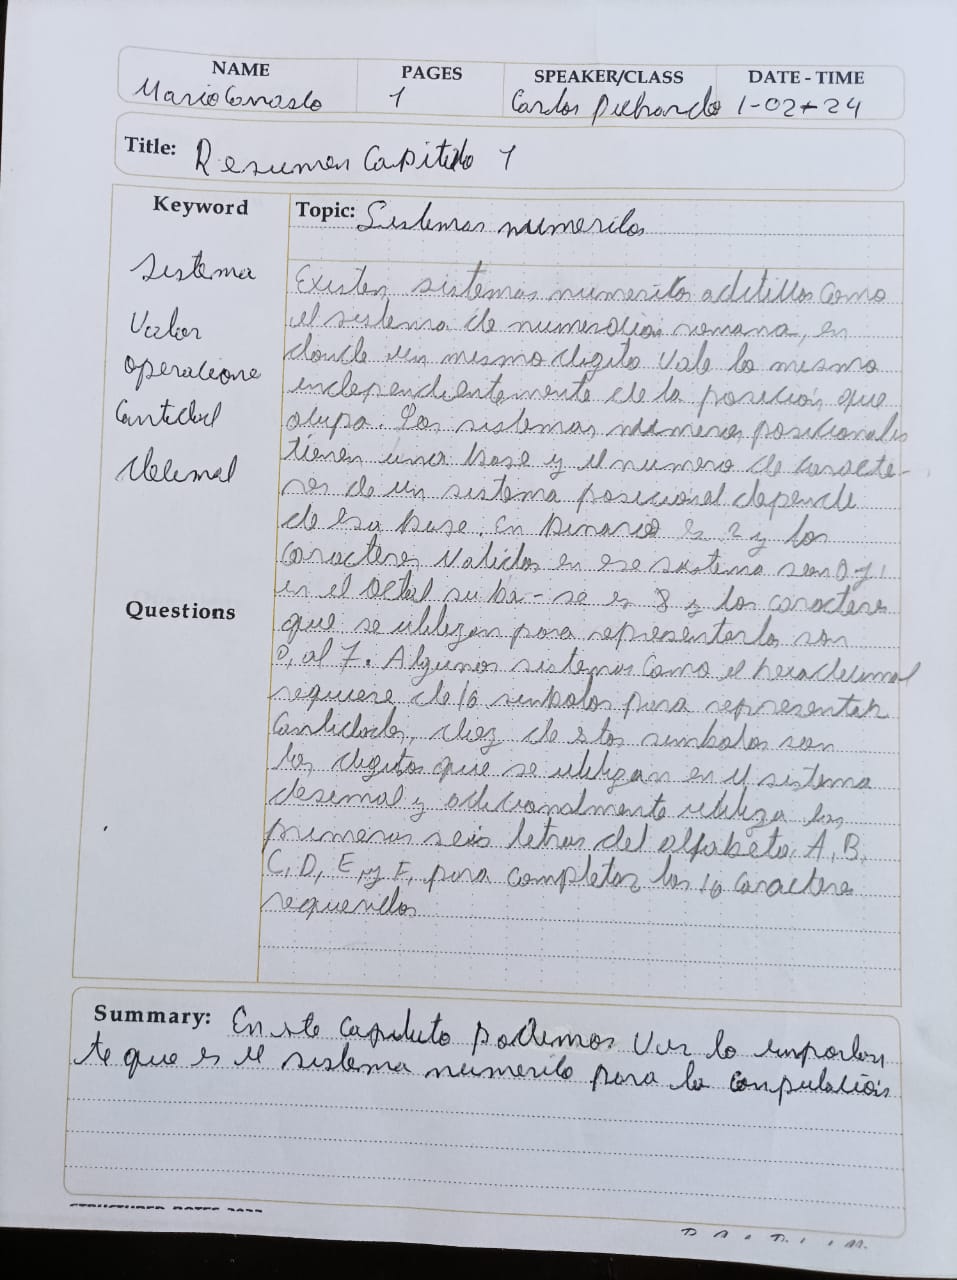 NAME PAGES SPEAKER/CLASS DATE - TIME
Mario 1 Carlos Pichardo 1-02-24
Title: Resumen Capitulo 1
Keyword
Topic: Sistemas numericos
Sistema
Valor
Operacione
Cantidad
Decimal
Questions
Existen sistemas numericos aditivos como
el sistema de numeración romana, en
donde un mismo digito vale lo mismo
independientemente de la posición que
ocupa. Los sistemas numeros posicionales
tienen una base y el numero de caracte-
res de un sistema posicional depende
de esa base. En binario es 2 y los
caracteres validos en ese sistema son 0 y 1
en el octal su ba-se es 8 y los caracteres
que se utilizan para representarlo son
0, al 7. Algunos sistemas como el hexadecimal
requiere de 16 simbolos para representar
cantidades, diez de stos simbolos son
los digitos que se utilizan en el sistema
desimal y adicionalmente utiliza las
primeras seis letras del alfabeto, A, B,
C, D, E, y F, para completar los 16 caracteres
requeridos
Summary: En ste capituto podemos ver lo importan
te que es el sistema numerico para la computación